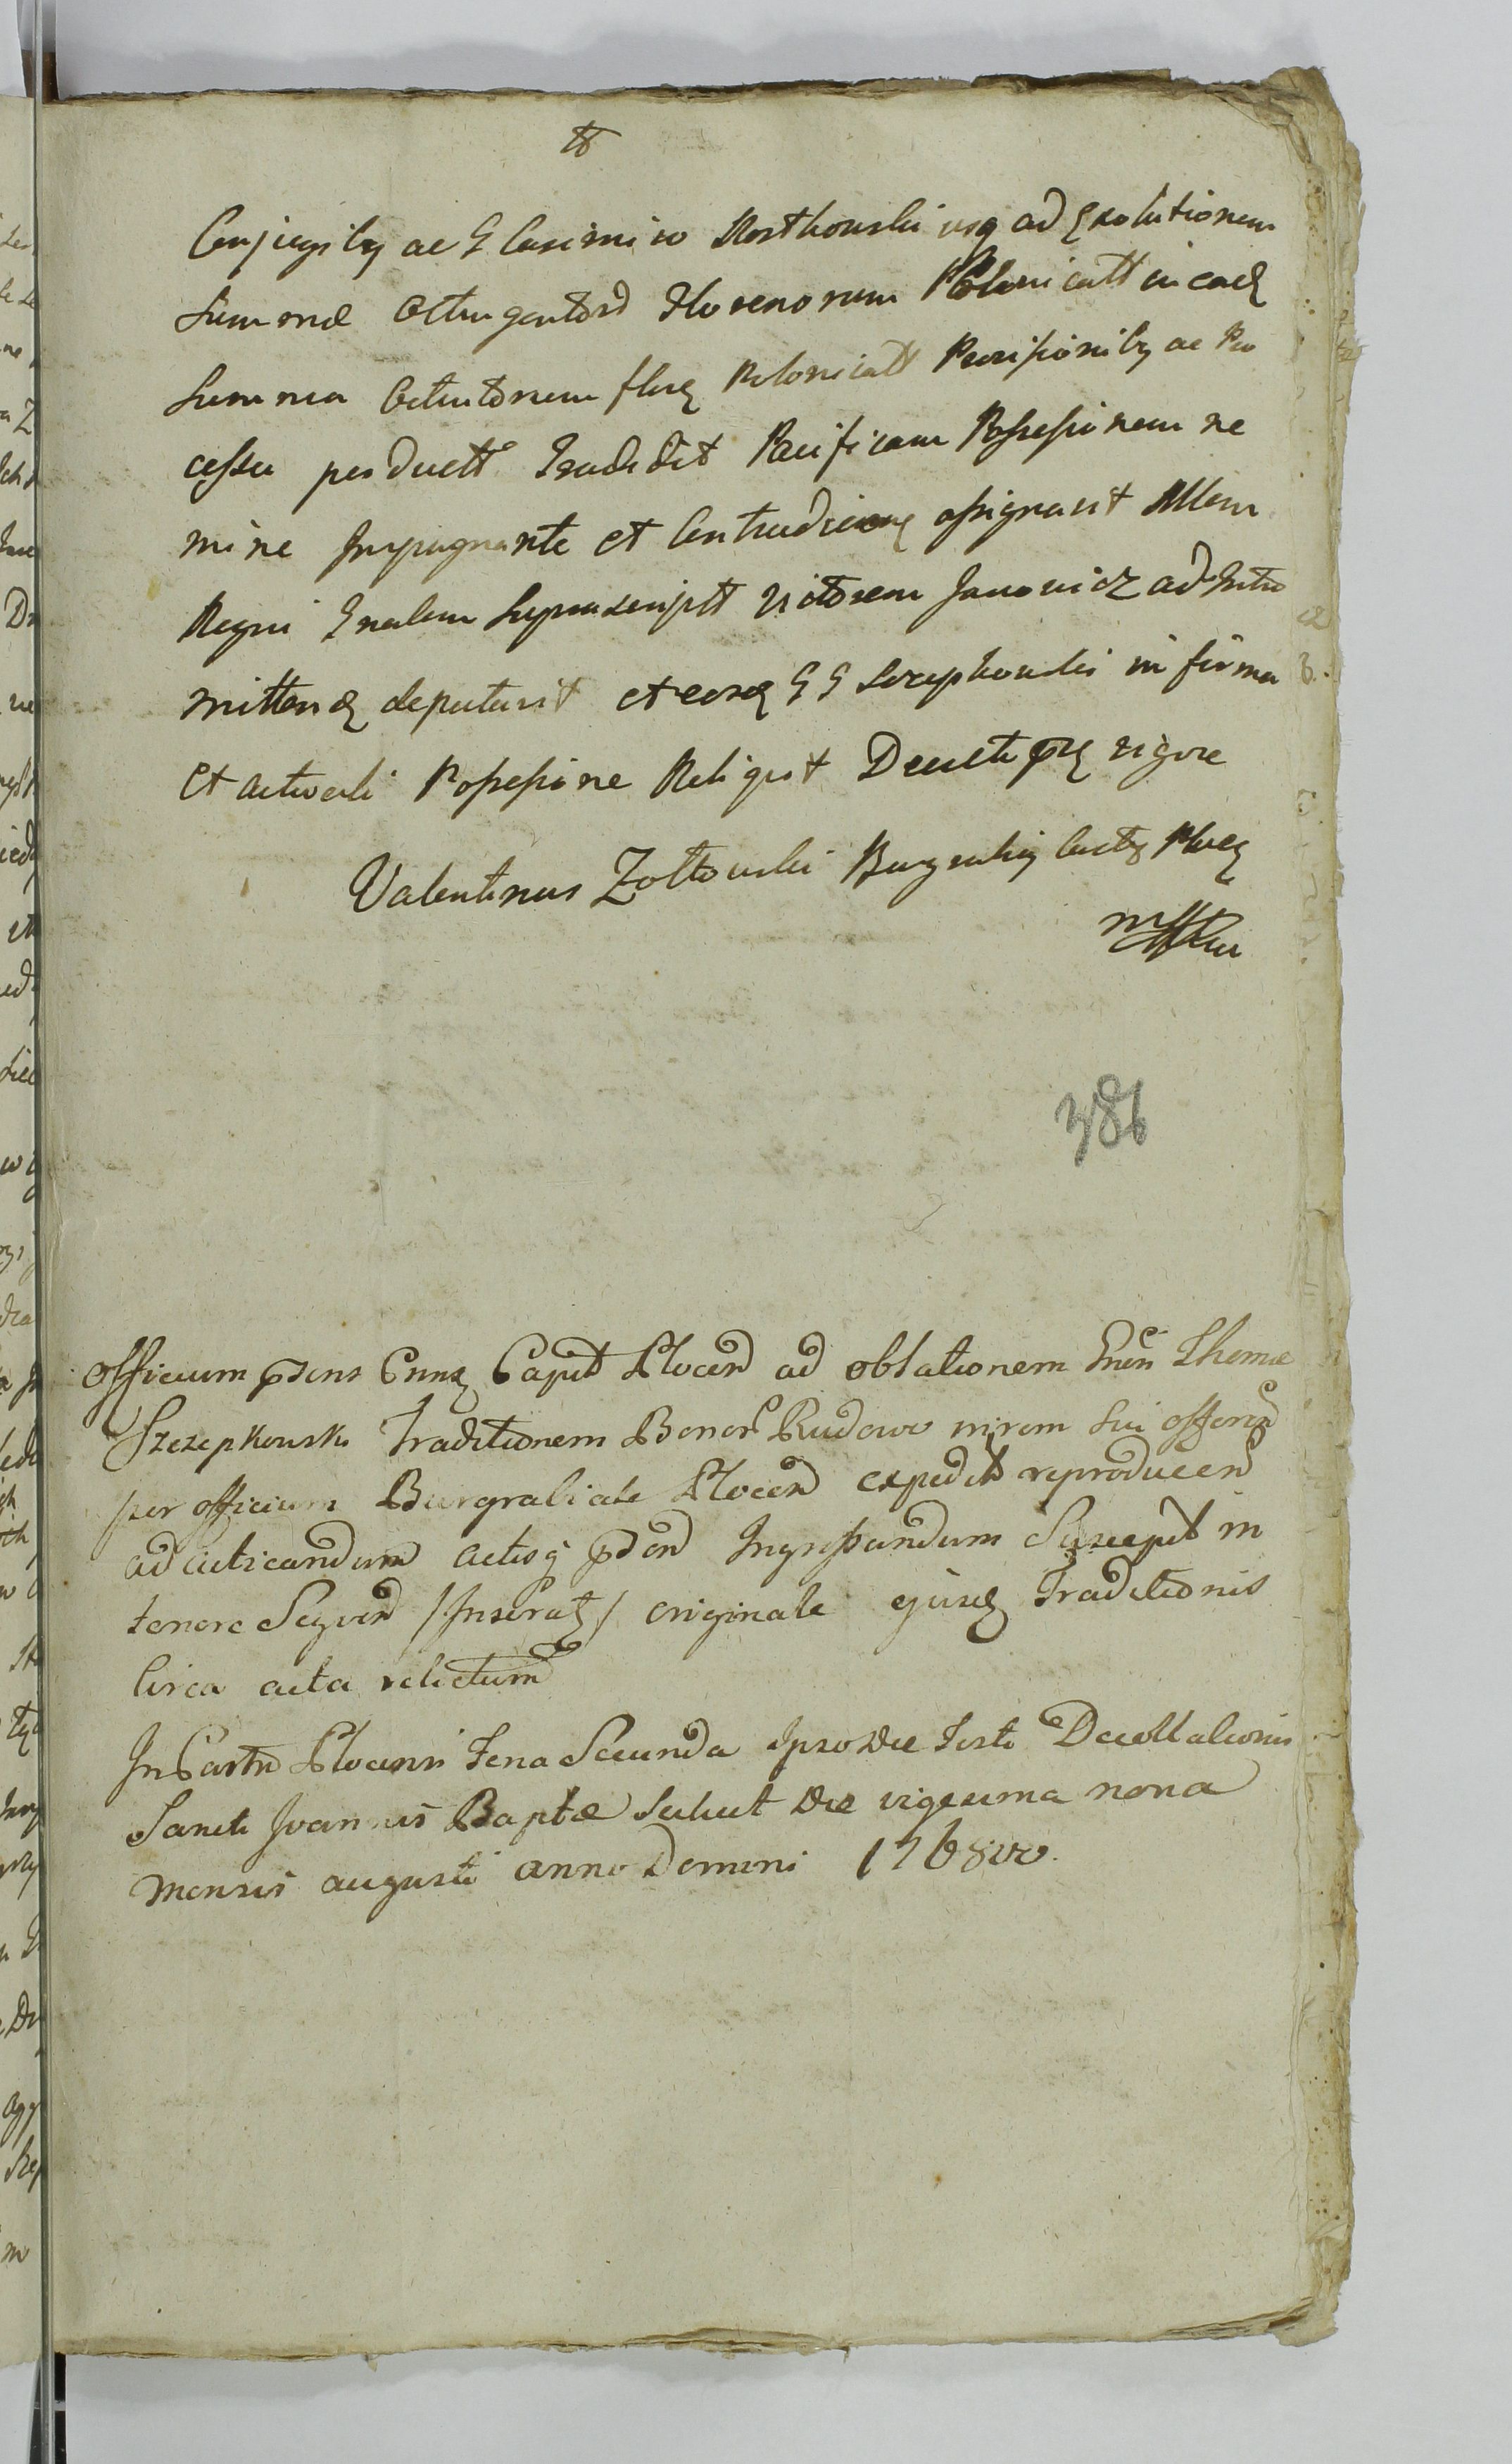 Conjugiby ac G Casimiro Rostkowski usq ad Exolutionem
Summæ Octingentord Florenorum Polonicatt in eadȩ
Summa Octintorum flor Polonicatt Provisioniby ac Pro
cessu perductt Tradidit Pacificam Possessionem ne
mine Impugnante et Contradicenȩ assignavit Mlem
Regni Gnalem Suprascriptt Victorem Janowicz ad Intro
mittendȩ deputavit et eosdȩ G G Szczepkowskie in firma
et actuali Possessione Reliquit Decreti pntȩ vigore
Valentinus Zołtowski Burgrabiȩ Castrȩ Plocȩ
mppa
386
Officium pdens Castrȩ Capit Plocen ad oblationem Gnēn Thomæ
Szczepkowski Traditionem Bonor Rudowo in rem sui offerend
per officium Burgrabiale Plocen expedit reproducen
ad acticandum actisq pden Ingrossandum Suscepit in
tenore Sequen /Inseratȩ/ originale ejusdȩ Traditionis
Circa acta relictum
In Castro Plocensi Feria Secunda Ipso die Festi Decollationis
Sancti Joannis Baptæ scilicet die vigesima nona
mensis augusti anno Domini 1768vo.